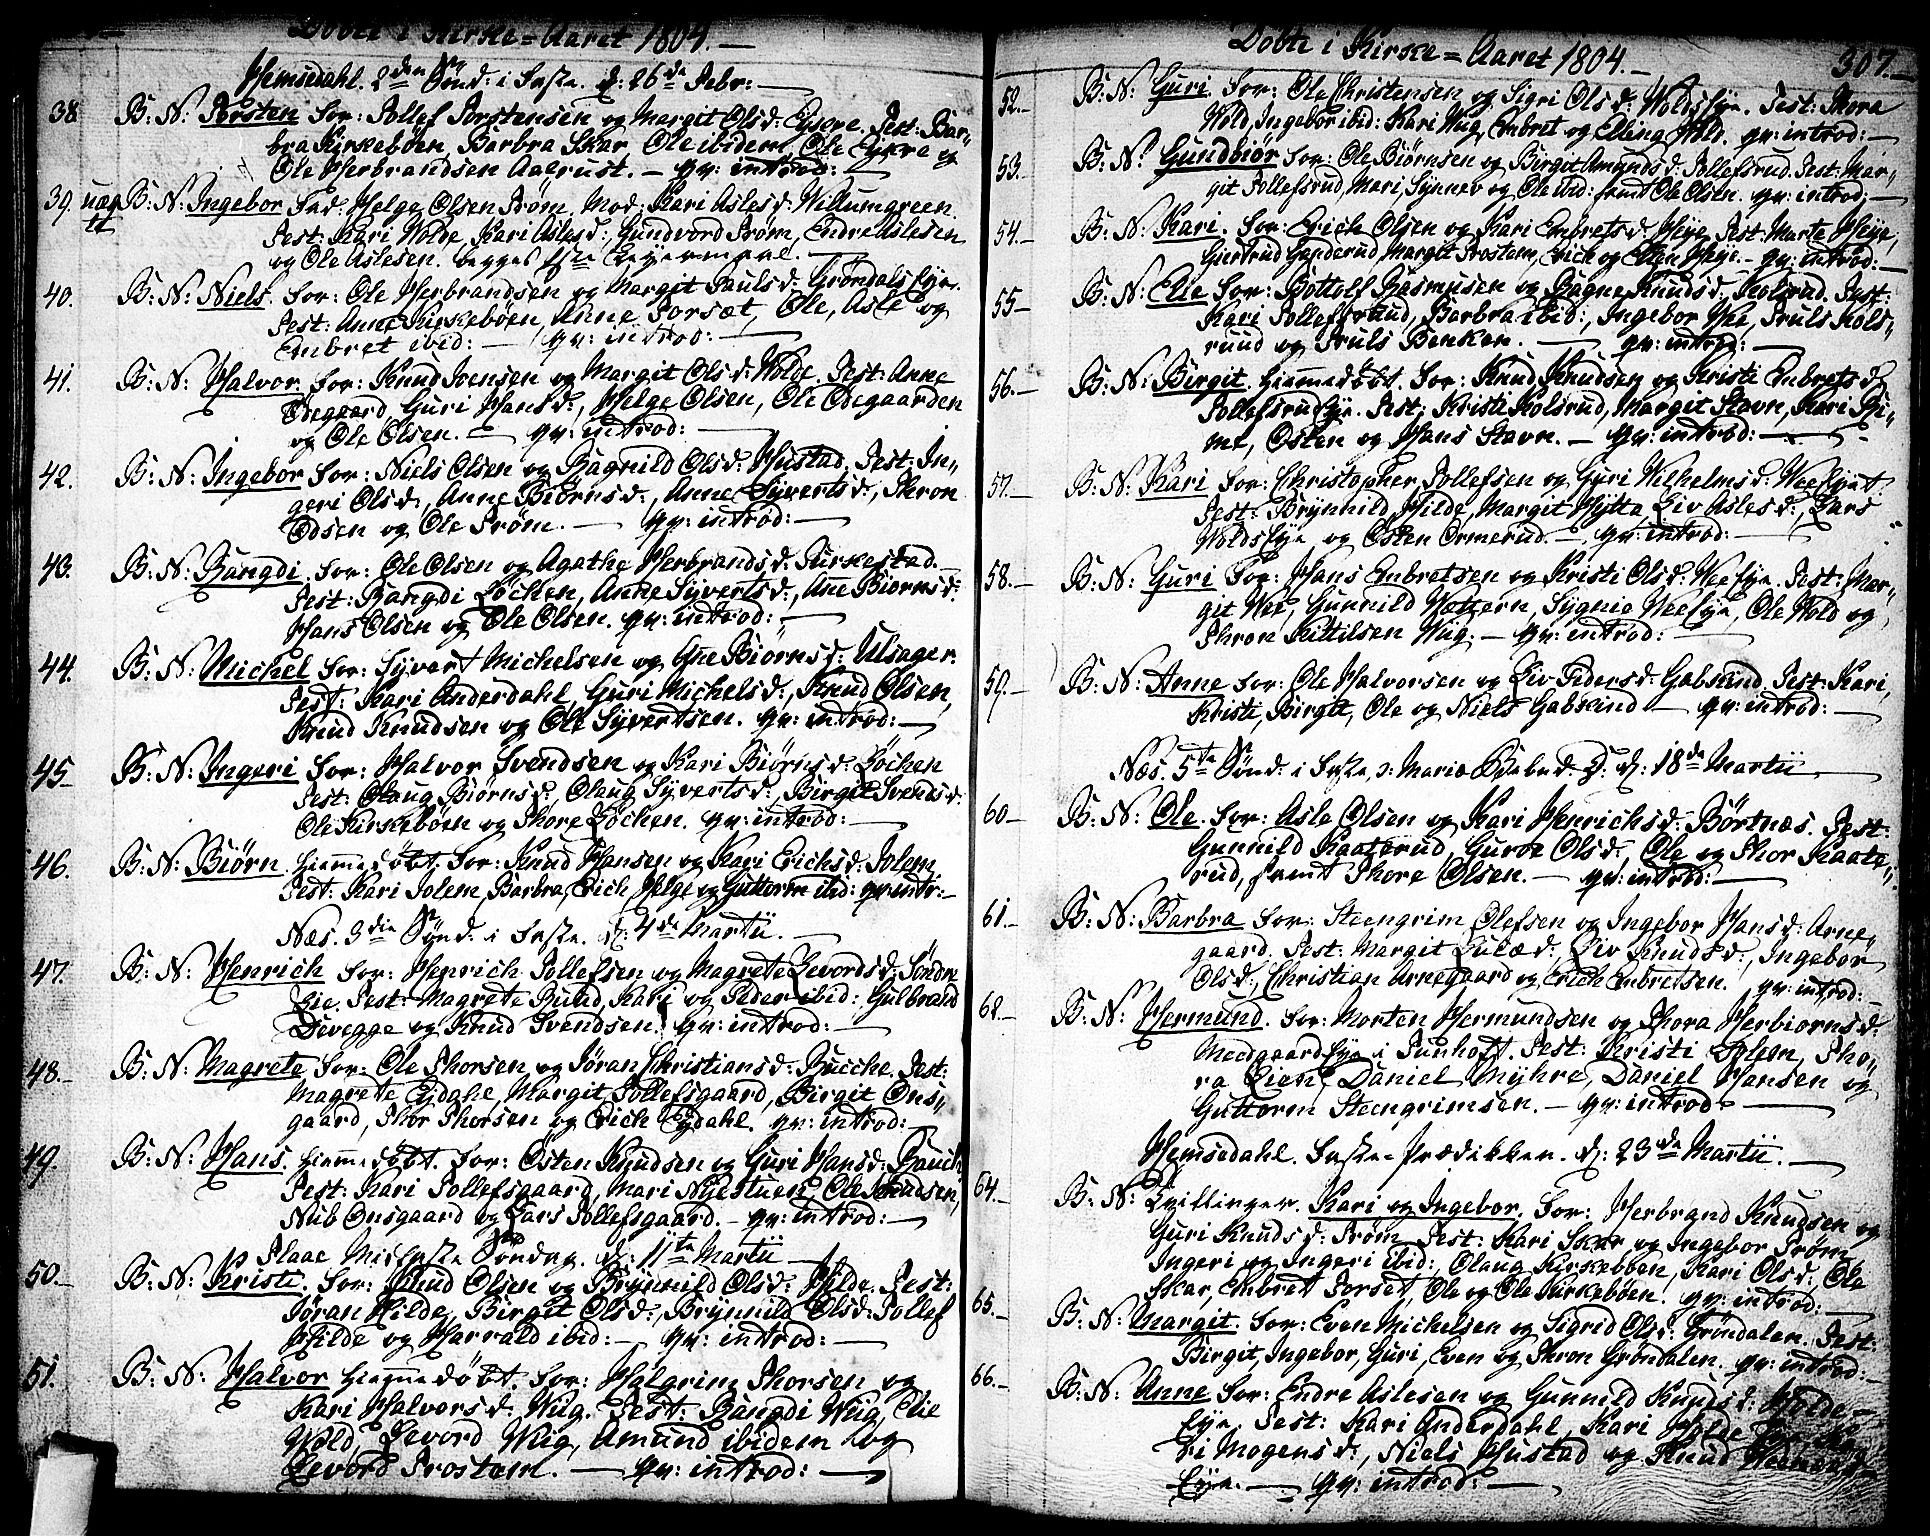 Døbte i Kirke=Aaret 1804.
Hemsedahl. 2den Sønd: i Faste. d: 26de Febr:
38 B: N: Torsten For: Tollef Torstensen og Margit Olsd: Eysere. Test: Bar-
bra Kirkebøen, Barbra Skar, Ole ibidem, Ole Eykre og
Ole Herbrandsen Aalrust. qv: introd:
39. uægte B: N: Ingebor Fad: Helge Olsen Trøm. Mod: Kari Aslesd: Willumgreen.
Test: Kari Wolde, Kari Aslesd:, Gundvord Trøm, Endre Aslesen
og Ole Aslesen. begges 1ste Leyermaal.
40. B: N: Niels. For: Ole Herbrandsen og Margit Paulsd: Grøndalseye.
Test: Anne Kirkebøen, Anne Torsæt, Ole, Asle og
Embret ibid: qv: introd:
41. B: N: Halvor. For: Knud Joensen og Margit Olsd: Wolde. Test: Anne
Ødegaard, Guri Hansd:, Helge Olsen, Ole Ødegaarden
og Ole Olsen. qv: introd:
42. B: N: Ingebor For: Niels Olsen og Bagnild Olsd: Hustad. Test: In-
geri Olsd:, Anne Biørnsd:, Anne Syvertsd:, Thron
Odsen og Ole Trøm. qv: introd:
43. B: N: Bangdi. For: Ole Olsen og Agathe Herbrandsd: Kirkestad.
Test: Bangdi Løchen, Anne Syvertsd:, Ane Biørnsd:
Hans Olsen og Ole Olsen. qv: introd:
44. B: N: Michel For: Syvert Michelsen og Ane Biørnsd: Ulsager.
Test: Kari Anderdahl, Guri Michelsd:, Knud Olsen,
Knud Knudsen og Ole Syvertsen. qv: introd:
45. B: N: Ingeri For: Halvor Svendsen og Kari Biørnsd: Løchen
Test: Olaug Biørnsd:, Olaug Syvertsd:, Birgit Svendsd:
Ole Kirkebøen og Thore Løchen. qv: introd:
46. B: N: Biørn. Hiemmedøbt. For: Knud Hansen og Kari Erichsd: Jolem.
Test: Kari Jolem, Barbra, Erich, Helge og Guttorm ibid: qv: intr:
Næs. 3die Sønd. i Faste. d: 4de Martii.
47. B: N: Henrich For: Henrich Tollefsen og Magrete Levordsd: Søndre
Lie. Test: Magrete Lund, Kari og Peder ibid: Gulbrand
Divegge og Knud Svendsen. qv: introd:
48. B: N: Magrete For: Ole Thorsen og Jøran Christiansd: Bucche. Test:
Magrete Eydahl, Margit Tollefsgaard, Birgit Ons-
gaard, Thor Thorsen og Erich Eydahl. qv: introd:
49. B: N: Hans. Hiemmedøbt. For: Østen Knudsen og Guri Hansd: Bauch
Test: Kari Tollefsgaard, Mari Nyestuen, Ole Knudsen,
Nub Onsgaard og Lars Tollefsgaard. qv: introd:
Flaae Midfaste Søndag. d: 11te Martii
50. B: N: Kristi. For: Knud Olsen og Brynnild Olsd: Hilde. Test:
Jøran Hilde, Birgit Olsd:, Brynnild Olsd: Tollef
Hilde og Harrald ibid: qv: introd:
51. B: N: Halvor hiemmedøbt. For: Halgrim Thorsen og
Kari Halvorsd: Wiig. Test: Bangdi Wiig, Elie
Wold, Levord Wiig, Amund ibidem og
Levord Trostem. qv: introd:
Døbte i Kirke=Aaret 1804. 307.
52. B: N: Guri. For: Ole Christensen og Sigri Olsd: Woldseye. Test: Thora
Wold, Ingebor ibid: Kari Wiig, Embret og Elling Wold. qv: introd:
53. B: N: Gundbiør For: Ole Biørnsen og Birgit Amundsd: Tollefsrud. Test: Mar-
git Tollefsrud, Mari, Synnev og Ole ibid: samt Ole Olsen. qv: introd:
54. B: N: Kari. For: Erich Olsen og Kari Embretsd: Heye. Test: Marte Heye,
Giertrud Gynderud, Margit Trostem, Erich og Ellen Heye. qv: introd:
55 B: N: Elle For: Bottolf Rasmusen og Bagne Knudsd: Kolsrud. Test:
Kari Tollefsrud, Barbra ibid:, Ingebor Ihe, Truls Kols-
ruud og Truls Benken. qv: introd:
56. B: N: Birgit. Hiemmedøbt. For: Knud Knudsen og Kristi Embretsd:
Tollefsrudeye. Test: Kristi Kolsrud, Margit Stavn, Kari Bi-
me, Østen og Hans Stavn. qv: introd:
57. B: N: Kari For: Christopher Tollefsen og Gyri Wilhelmsd: Weeseyet.
Test: Brynnild Hilde, Margit Hytta, Liv Aslesd:, Lars
Woldseye og Østen Ormerud. qv: introd:
58. B: N: Guri For: Hans Embretsen og Kristi Olsd: Weeseye. Test: Mar-
git Wee, Gunnild Wættern, Sygnie Weeseye, Ole Wold og
Thron Kittilsen Wiig. qv: introd:
59. B: N: Anne For: Ole Halvorsen og Liv Pedersd: Gabsund. Test: Kari,
Kristi, Birgit, Ole og Niels Gabsund qv: introd:
Næs. 5te Sønd: i Faste, o: Mariæ Bebud: D: d: 18de Martii
60 B: N: Ole. For: Asle Olsen og Kari Henrichsd: Børtnæs. Test:
Gunnild Kaaterud, Guroe Olsd:, Ole og Thor Kaate-
rud, samt Thore Olsen. qv: introd:
61. B: N: Barbra For: Steengrim Olefsen og Ingebor Hansd: Arne-
gaard. Test: Margit Lucæd:, Liv Knudsd:, Ingebor
Olsd:, Christian Arnegaard og Erich Embretsen. qv: introd:
62. B: N: Hermund. For: Morten Hermundsen og Thora Herbiørnsd:
Meedgaardseye i Tunhoft. Test: Kristi Solem, Tho-
ra Lien, Daniel Myhre, Daniel Hansen og
Guttorm Steengrimsen. qv: introd:
Hemsedahl. Faste-Prædikken. d: 23de Martii.
64. B: N: Tvillinger. Kari og Ingebor. For: Herbrand Knudsen og
Guri Knudsd: Trøm. Test: Kari Skar og Ingebor Trøm,
Ingeri og Ingeri ibid:, Olaug Kirkebøen, Kari Olsd:, Ole
Skar, Embret Torset, Ole og Ole Kirkebøen. qv: introd:
65. B: N: Margit. For: Even Michelsen og Sigrid Olsd: Grøndalen. Test:
Birgit, Ingebor, Guri, Even og Thron Grøndalen. qv: introd:
66. B: N: Anne For: Endre Aslesen og Gunnild Knudsd: Wolde-
Eye. Test: Kari Anderdahl, Kari Wolde,
ri Mogensd:, Niels Hustad og Knud
Eye. qv: introd: